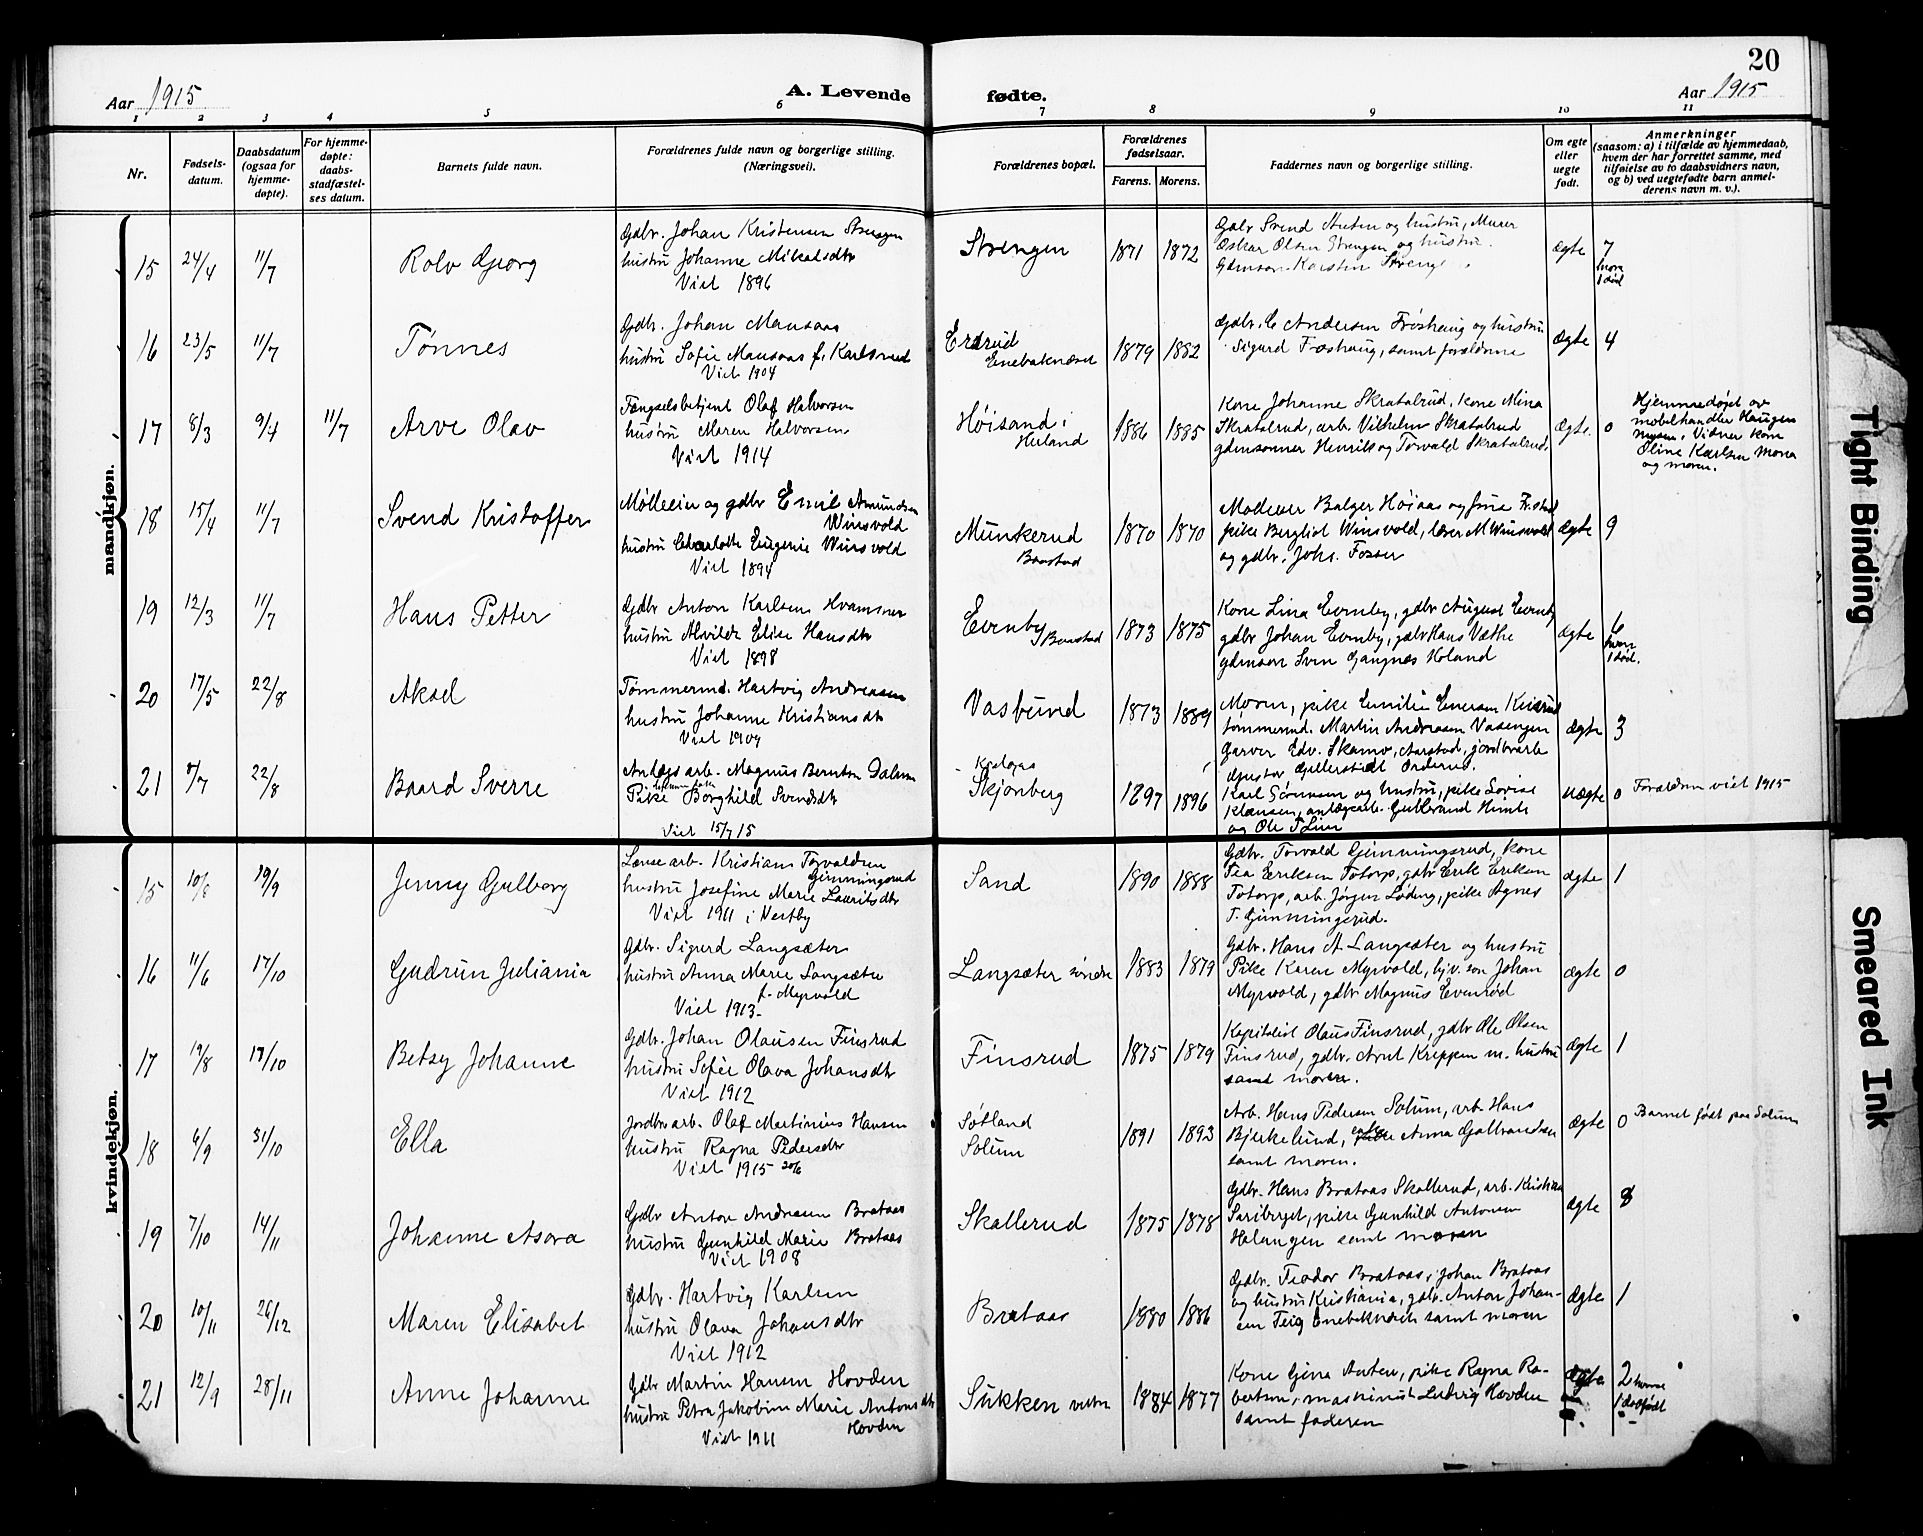 20
Aar 1915
A. Levende
fødte.
Aar 1915
1 2 3 4 5 6 7 8 9 10 11
Nr.
Fødsels-
datum.
Daabsdatum
(ogsaa for
hjemme-
døpte).
For hjemme-
døpte:
daabs-
stadfæstel-
ses datum.
Barnets fulde navn.
Forældrenes fulde navn og borgerlige stilling.
(Næringsvei).
Forældrenes bopæl.
Forældrenes
fødselsaar.
Farens. Morens.
Faddernes navn og borgerlige stilling.
Om egte
eller
uegte
født.
Anmerkninger
(saasom: a) i tilfælde av hjemmedaab,
hvem der har forrettet samme, med
tilføielse av to daabsvidners navn,
og b) ved uegtefødte barn anmel-
derens navn m. v.).
mandkjøn.
15 24/4 11/7 Rolv Georg
Gdbr. Johan Kristensen Strengen
hustru Johanne Mikalsdtr
Viet 1896
Strengen 1871 1872
Gdbr Svend Anten og hustru, Murer
Oskar Olsen Strengen og hustru.
Gdmsøn Karsten
ægte 7
hvorav
1 død
16 23/5 11/7 Tønnes
Gdbr. Johan Mansaas
hustru Sofie Mansaas f. Karlsrud
Viet 1904
Enebaknæsset 1879 1882
Gdbr. C Andersen Frøshaug og hustru
Sigurd Frøshaug, samt forældrene
ægte 4
17 8/3 9/4 11/7 Arve Olav
Fængselsbetjent Olaf Halvorsen
hustru Maren Halvorsen
Viet 1914
Høisand i
Høland 1886 1885
Kone Johanne Skratalrud, Kone Mina
Skratalrud, arb. Vilhelm Skratalrud
gdmsønner Henrik og Torvald Skratalrud.
ægte. 0
Hjemmedøpt av
møbelhandler Haugen
Mysen. Vidner kone
Oline Karlsen Mona
og moren.
18 15/4 11/7 Svend Kristoffer
Mølleeier og gdbr Emil Amundsen
Winsvold
hustru Charlotte Eugenie Winsvold
Viet 1894
Munkerud
Baastad 1870 1870
Balger Høiaas og frue
pike Bergliot Winsvold, lærer M Winsvold
og gdbr. Johs. Fosser
ægte 9
19 12/3 11/7 Hans Petter
Gdbr Anton Karlsen Kvamsner
hustru Alvilde Elise Hansdtr
Viet 1898
Evenby
Baastad 1873 1875
Kone Lina Evenby, gdbr August Evenby
gdbr Johan Evenby, gdbr Hans Væthe
gdmsøn Sven Gangnæs Høland
ægte 6
hvorav
1 død.
20 17/5 22/8 Aksel
Tømmermd. Hartvig Andreasen
hustru Johanne Kristiansdtr
Viet 1909
Vasbund 1873 1889
Moren, pike Emilie Enersen
tømmermd. Martin Andreasen Vasengen
Garver Edv. Skamo, Aarstad, jordbrarb
ægte 3
21 7/7 22/8 Baard Sverre
Anlægsarb. Magnus Berntsen Dalum
Pike Borghild Svendsdtr
Viet 15/7 15
Skjønberg 1897 1896
Karl Sørensen og hustru, pike Lovise
Klausen, anlægsarb. Gulbrand
og Ole
uægte 0
Forældrene viet 1915
kvindekjøn.
15 10/8 19/9 Jenny Gulborg
Lensearb. Kristian Torvaldsen
Gimmingsrud
hustru Josefine Marie Lauritsdtr
Viet 1911 i Vestby
Sand 1890 1888
Gdbr. Torvald Gimmingsrud, kone
Tea Eriksen Totorp, gdbr Erik Eriksen
Totorp, arb. Jørgen Løding, pike Agnes
T. Gimmingsrud.
ægte 1
16 11/6 17/10 Gudrun Juliania
Gdbr. Sigurd Langsæter
hustru Anna Marie Langsæter
f. Myrvold
Viet 1913.
Langsæter søndre 1883 1879
Gdbr. Hans A. Langsæter og hustru
Pike Karen Myrvold, hjv. søn Johan
Myrvold, gdbr Magnus Evenrød
ægte 0
17 19/8 17/10 Betsy Johanne
Gdbr. Johan Olausen Finsrud
hustru Sofie Olava Johansdtr
Viet 1912
Finsrud 1875 1879
Kapitalist Olaus Finsrud, gdbr Ole Olsen
Finsrud, gdbr. Arnt Kreppen m. hustru
samt moren.
ægte 1
18 6/9 31/10 Ella
Jordbrarb. Olaf Martinius Hansen
hustru Ragna Pedersdtr
Viet 1915 20/6
Søtland
Solum 1891 1893
Arb. Hans Pedersen Solum, arb. Hans
Bjerkelund, enke Anna Gulbrandsen
samt moren.
ægte 0
Barnet født paa Solum
19 7/10 14/11 Johanne Asora
Gdbr Anton Andersen Brataas
hustru Gunhild Marie Brataas
Viet 1908
Skallerud 1875 1878
Gdbr. Hans Brataas Skallerud, arb. Kristian
Sariberget, pike Gunhild Antonsen
Helangen samt moren
ægte 8
20 10/11 26/12 Maren Elisabet
Gdbr. Hartvig Karlsen
hustru Olava Johansdtr
Viet 1912
Brataas 1880 1886
Gdbr. Teodor Brataas, Johan Brataas
og hustru Kristiania, gdbr. Anton Johan-
sen Teig Enebaknesset samt moren
ægte 1
21 12/9 28/11 Anne Johanne
Gdbr Martin Hansen Hovden
hustru Petra Jakobine Marie Antonsdtr
Hovden
Viet 1911
Sukken vestre 1884 1877
Kone Gina Anten, pike Ragna Ro-
bertsen, maskinist Ludvig Hovden
samt faderen
ægte 2 hvorav
1 dødfødt
Tight Binding
Smeared Ink